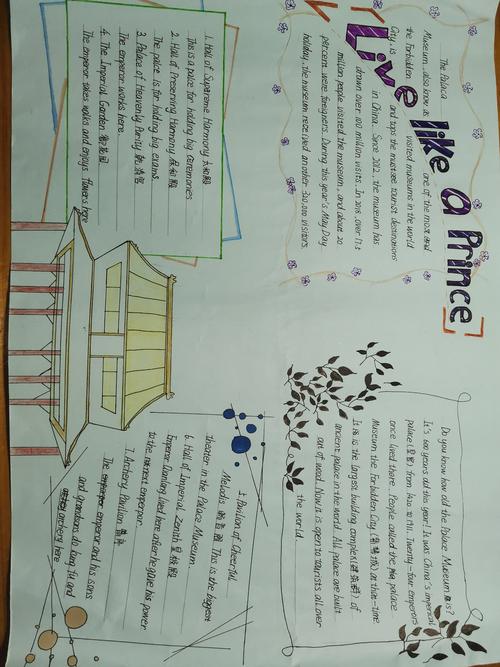 Live like a Prince
The Palace
Museum, also now as one of the most and
the Forbidden visited museums in the world
City, is and tops the most-see tourist destinations
in China. Since 2012, the museum has
drawn over 100 million visits. In 2018, over 17.5
million people visited the museum, and about 20
percent were foreigners. During this year's May Day
holiday, the museum received another 320,000 visitors.
Do you know how old the Palace Museum is?
It's 600 years old this year! It was China's imperial
palace(皇宫) from 1420 to 1911. Twenty-four emperors
once lived there. People called the palace
Museum the Forbidden City (紫禁城) at that time
It is the largest building complex(建筑群) of
ancient palace in the world. All palace are built
out of wood. Now it is open to tourists all over
the world
1. Hall of Supreme Harmony 太和殿
This is a palce for holding big ceremonies
2. Hall of Preserving Harmony 保和殿
The palce is for holding big exams.
3. Palace of Heavenly Purity 乾清宫
The emperor works here
4. The Imperial Garden 御花园
The emperor takes walks and enjoys flowers here
5. Pavilion of Cheerful
Melodies 畅音阁 This is the biggest
theater in the Palace Museum
6. Hall of Imperial Zenith 皇极殿
Emperor Qianlong lived here after he gave his power
to the next emperor.
7. Archery Pavilion 箭亭
The emperor and his sons
and grandsons do kung fu and
archery here